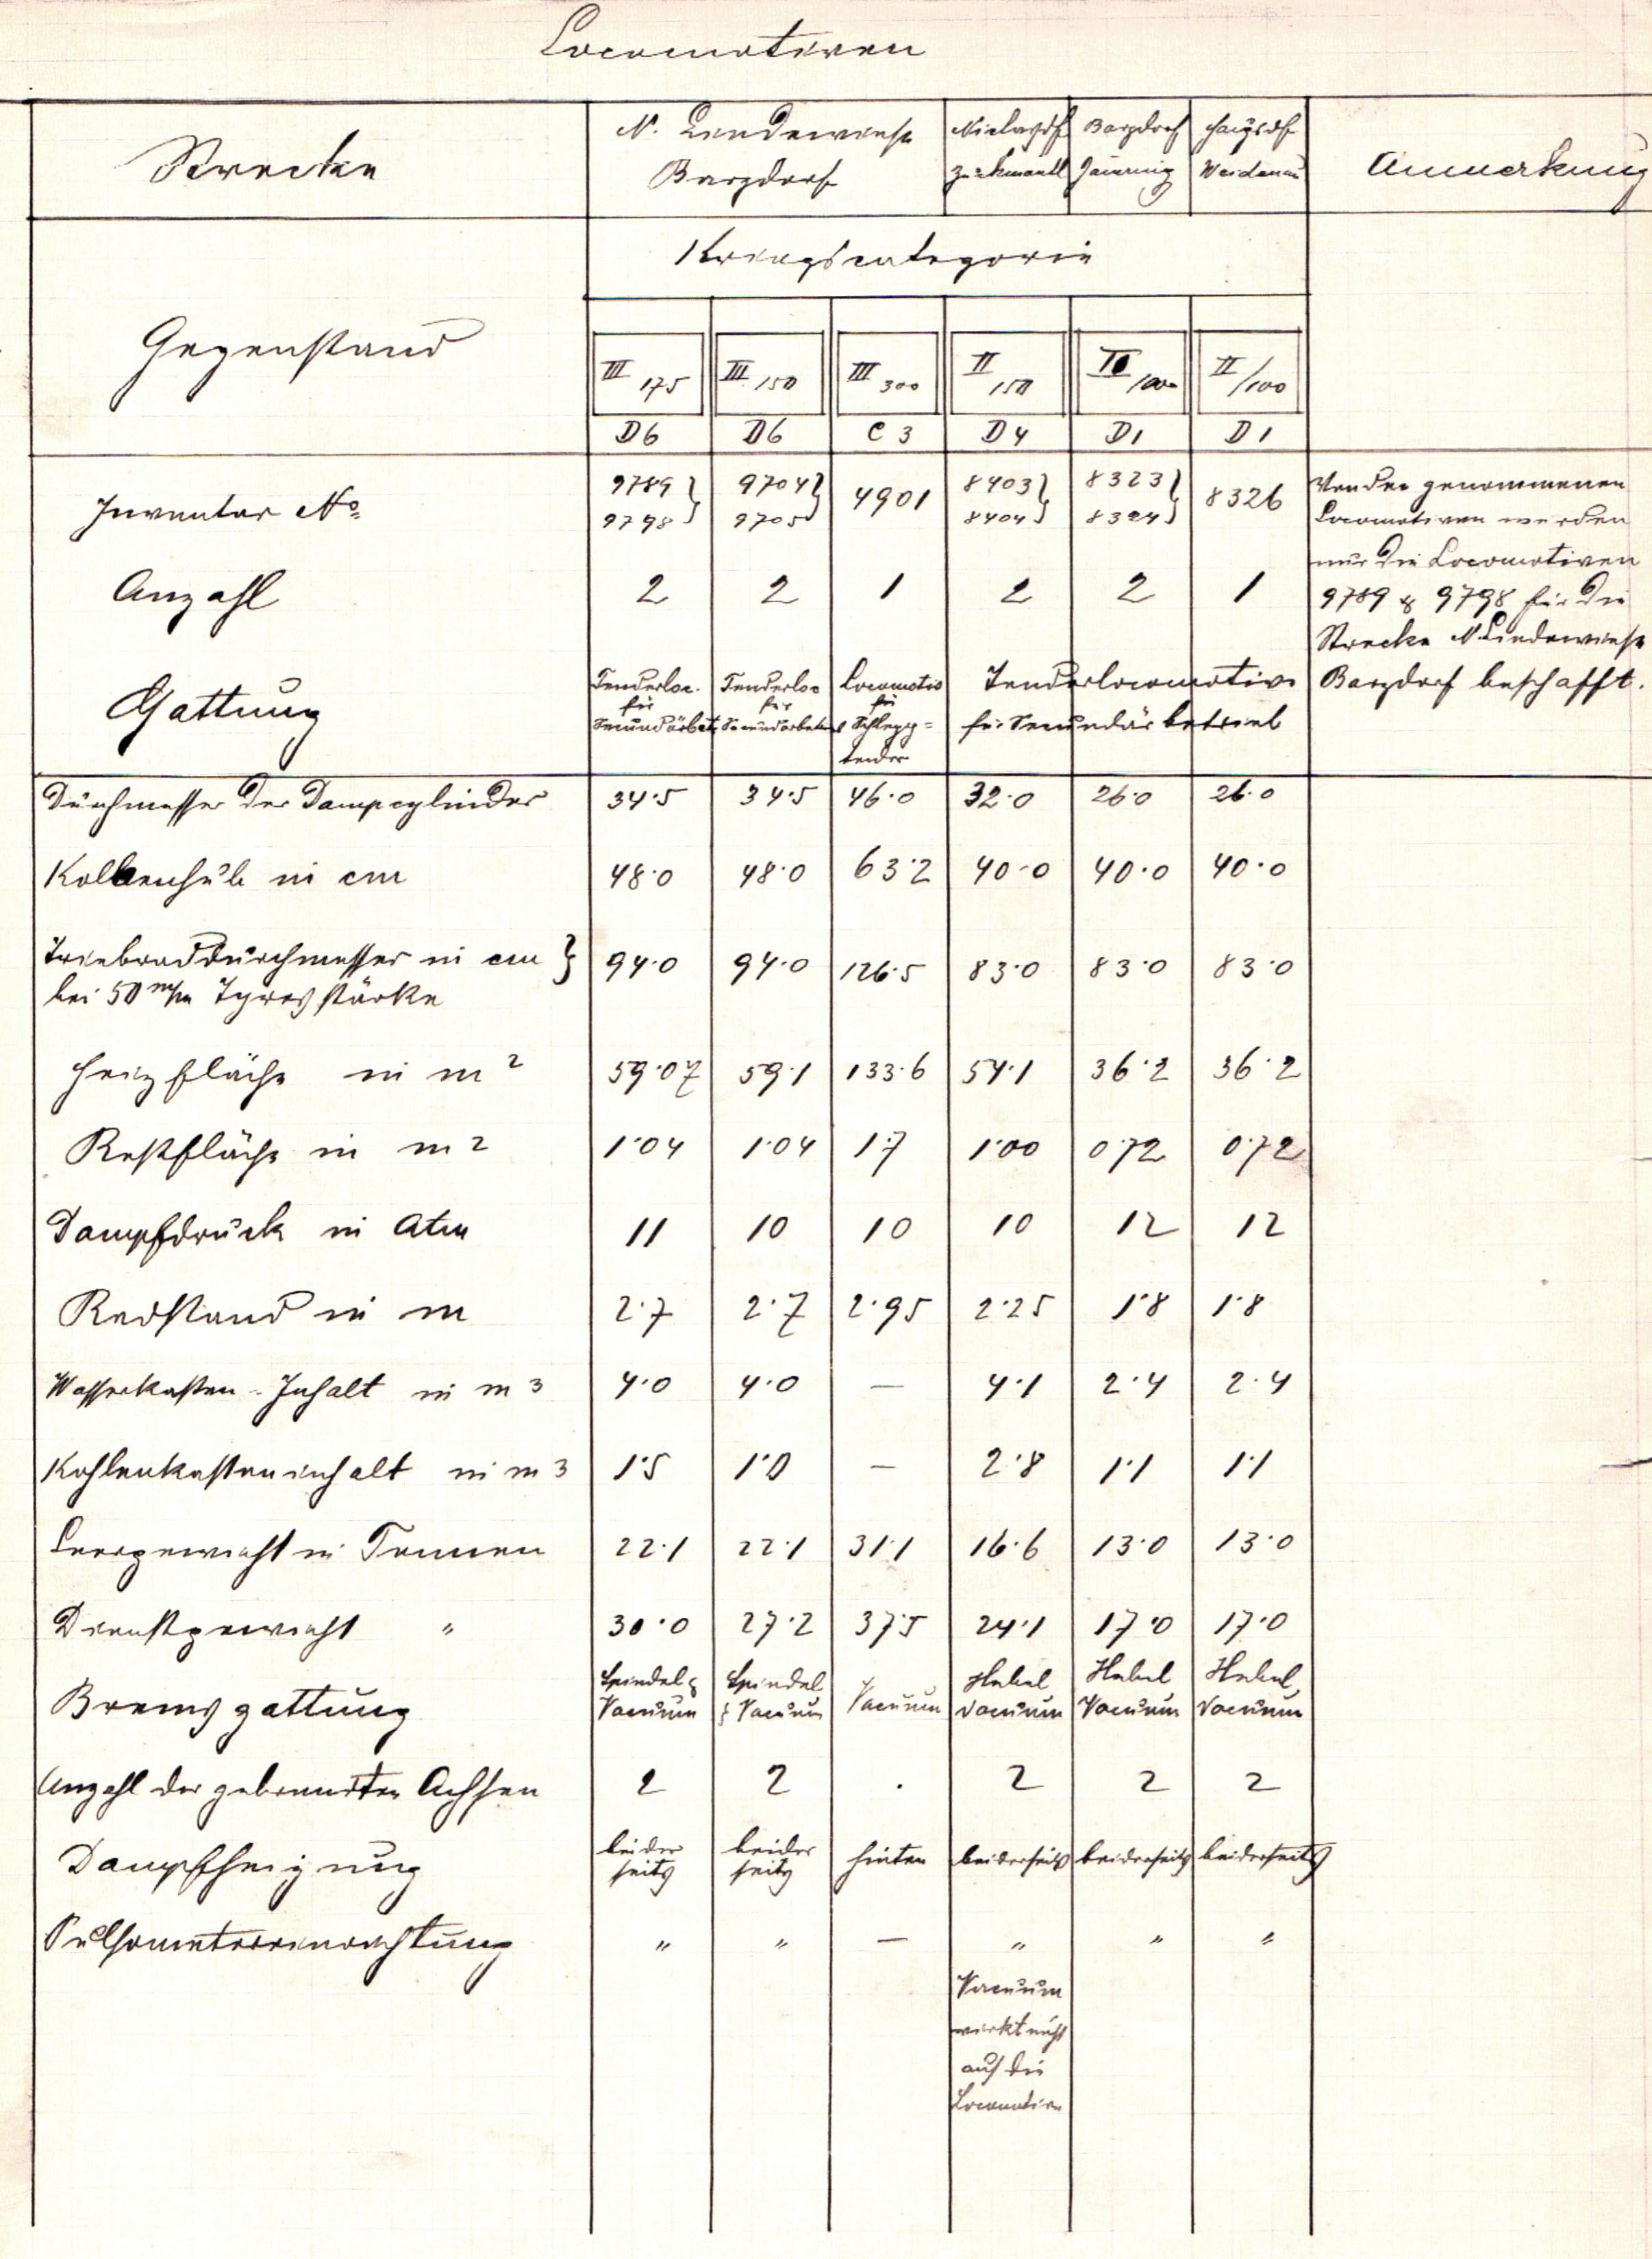 Locomotiven
Strecke N. Lindewiese Niklasdf Barzdorf Haugsdf Anmerkung
Barzdorf Zuckmantl Jauernig Weidenau
Kriegscategorie
Gegenstand
III 175 III 150 III 300 II 150 II /100 II /100
D6 D6 C3 D4 D1 D1
Inventar No 9789 9798 9704 9705 4901 8403 8404 8323 8324 8326
Anzahl 2 2 1 2 2 1
Von den genommenen
Locomotiven werden
nur die Locomotiven
9789 & 9798 für die
Strecke N Lindewiese
Barzdorf beschafft.
Gattung Tenderloc. Tenderloc Locomotiv Tenderlocomotive
für für für
Secundärbetr Secundärbetrieb Schlepp= für Secundärbetrieb
tender
Durchmesser der Dampcylinder 34·5 34·5 46·0 32·0 26·0 26·0
Kolbenhub in cm 48·0 48·0 63·2 40·0 40·0 40·0
Triebraddurchmesser in cm } 94·0 94·0 126·5 83·0 83·0 83·0
bei 50 m/m Tyresstärke
Heizfläche in m2 59·07 59·1 133·6 54·1 36·2 36·2
Rostfläche in m2 1·04 1·04 1·7 1·00 0·72 0·72
Dampfdruck in Atm 11 10 10 10 12 12
Radstand in m 2·7 2·7 2·95 2·25 1·8 1·8
Wasserkasten-Inhalt in m3 4·0 4·0 — 4·1 2·4 2·4
Kohlenkasteninhalt in m3 1·5 1·0 — 2·8 1·1 1·1
Leergewicht in Tonnen 22·1 22·1 31·1 16·6 13·0 13·0
Dienstgewicht " 30·0 27·2 37·5 24·1 17·0 17·0
Bremsgattung Spindel & Spindel Vacuum Hebel Hebel Hebel
Vacuum & Vacuum Vacuum Vacuum Vacuum
Anzahl der gebremsten Achsen 2 2 · 2 2 2
Dampfheizung beider beider hinten beiderseits beiderseits beiderseits
seits seits
Pulsometereinrichtung " " — " " "
Vacuum
wirkt nicht
auf die
Locomotive